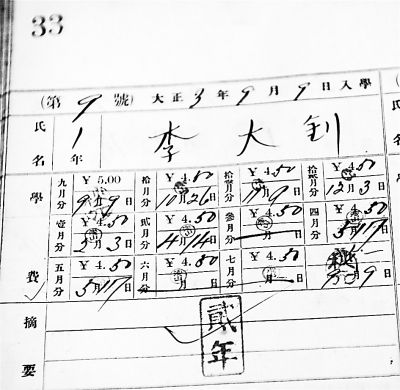 33
(第9號) 大正3年9月9日入學
氏名 1年 李大釗
學費
九月分 ¥5.00 9月9日 拾月分 ¥4.50 10月26日 拾壹月分 ¥4.50 11月9日 拾貳月分 ¥4.50 12月3日
壹月分 ¥4.50 3月3日 貳月分 ¥4.50 4月14日 參月分 ¥4.50 月日 四月分 ¥4.50 5月17日
五月分 ¥4.50 5月17日 六月分 ¥4.50 月日 七月分 ¥4.50 月日 月9日
摘要
貳年